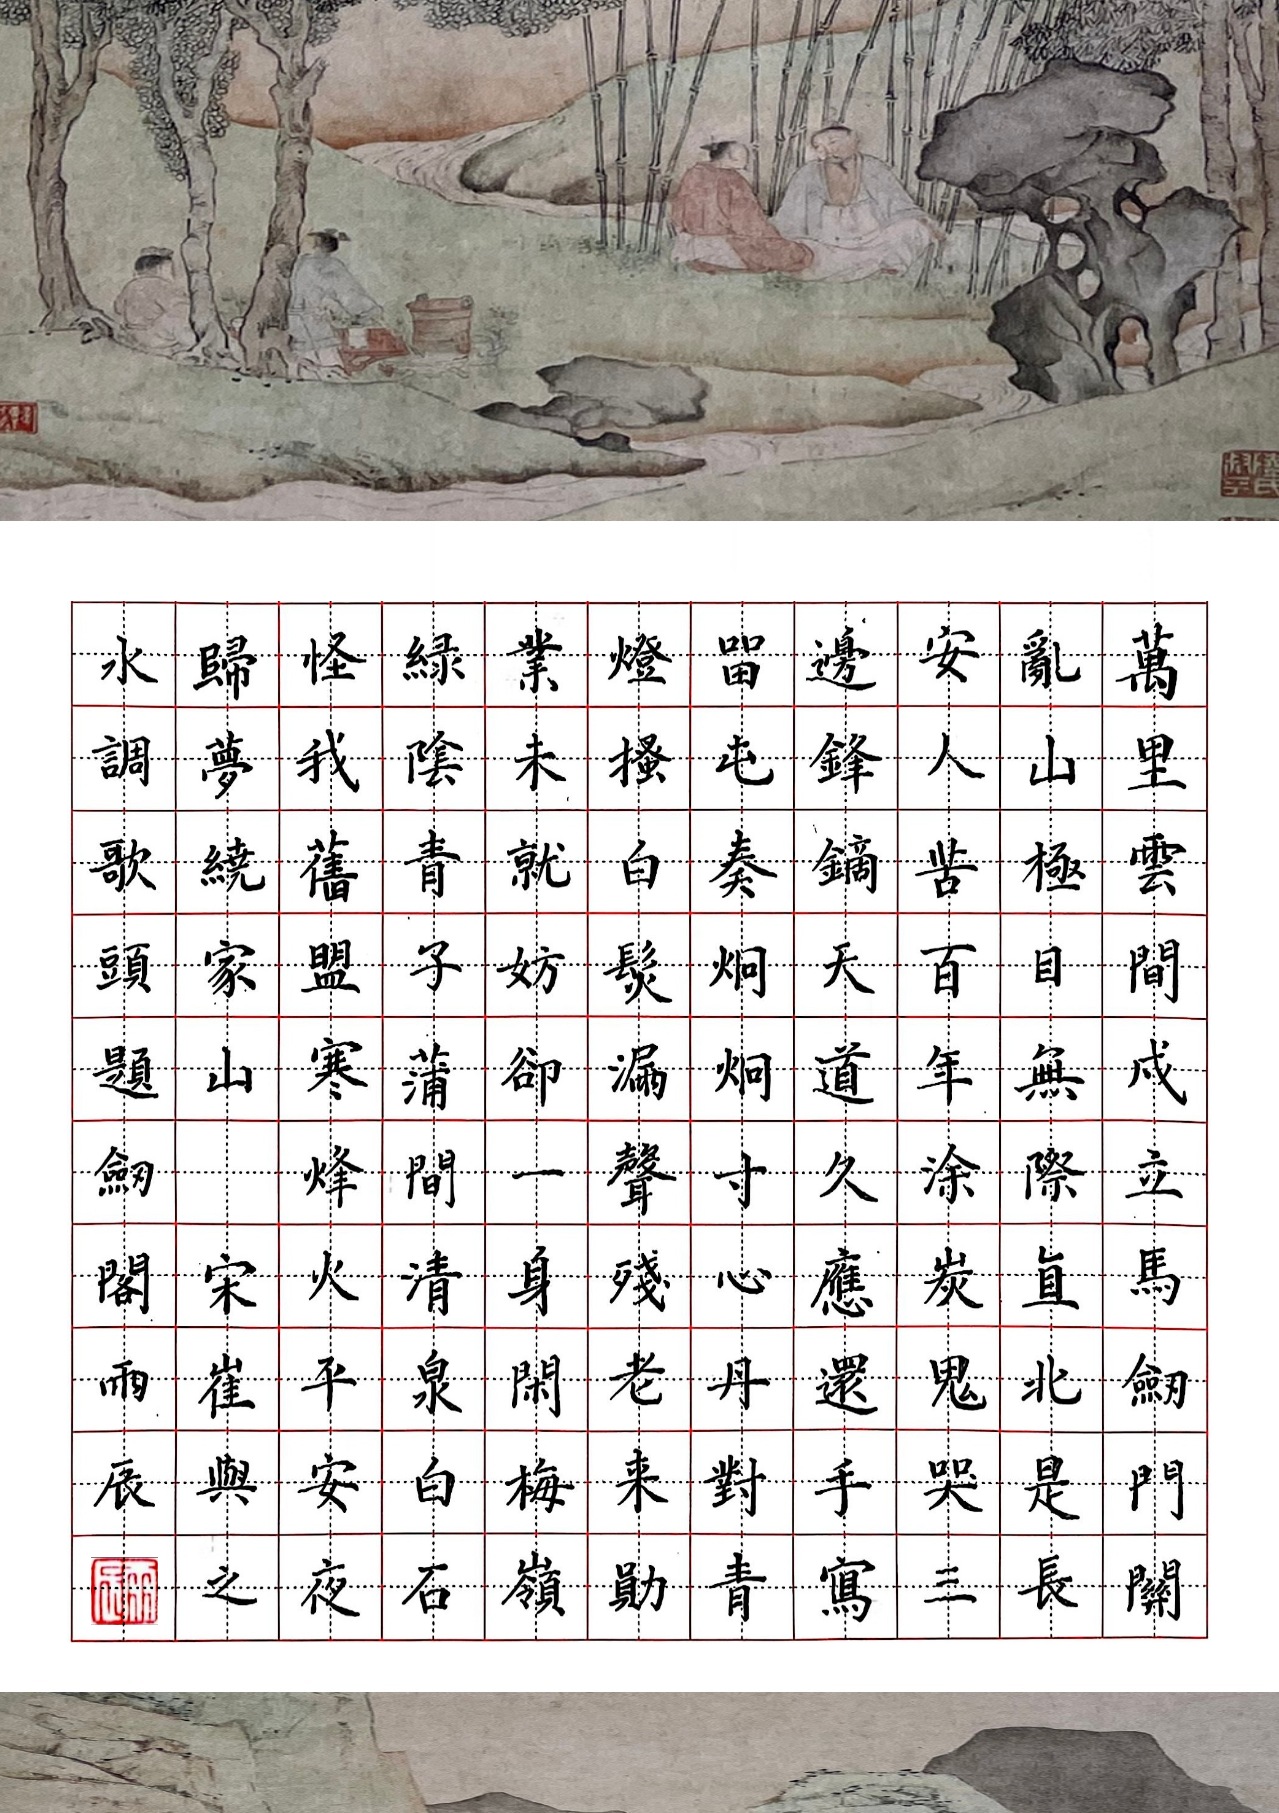 萬里雲間戍立馬劒門關
亂山極目無際直北是長
安人苦百年涂炭鬼哭三
邊鋒鏑天道久應還手寫
畱屯奏炯炯寸心丹對青
燈搔白髮漏聲殘老来勛
業未就妨卻一身閑梅嶺
緑陰青子蒲間清泉白石
怪我舊盟寒烽火平安夜
歸夢繞家山 宋崔與之
水調歌頭題劒閣雨辰